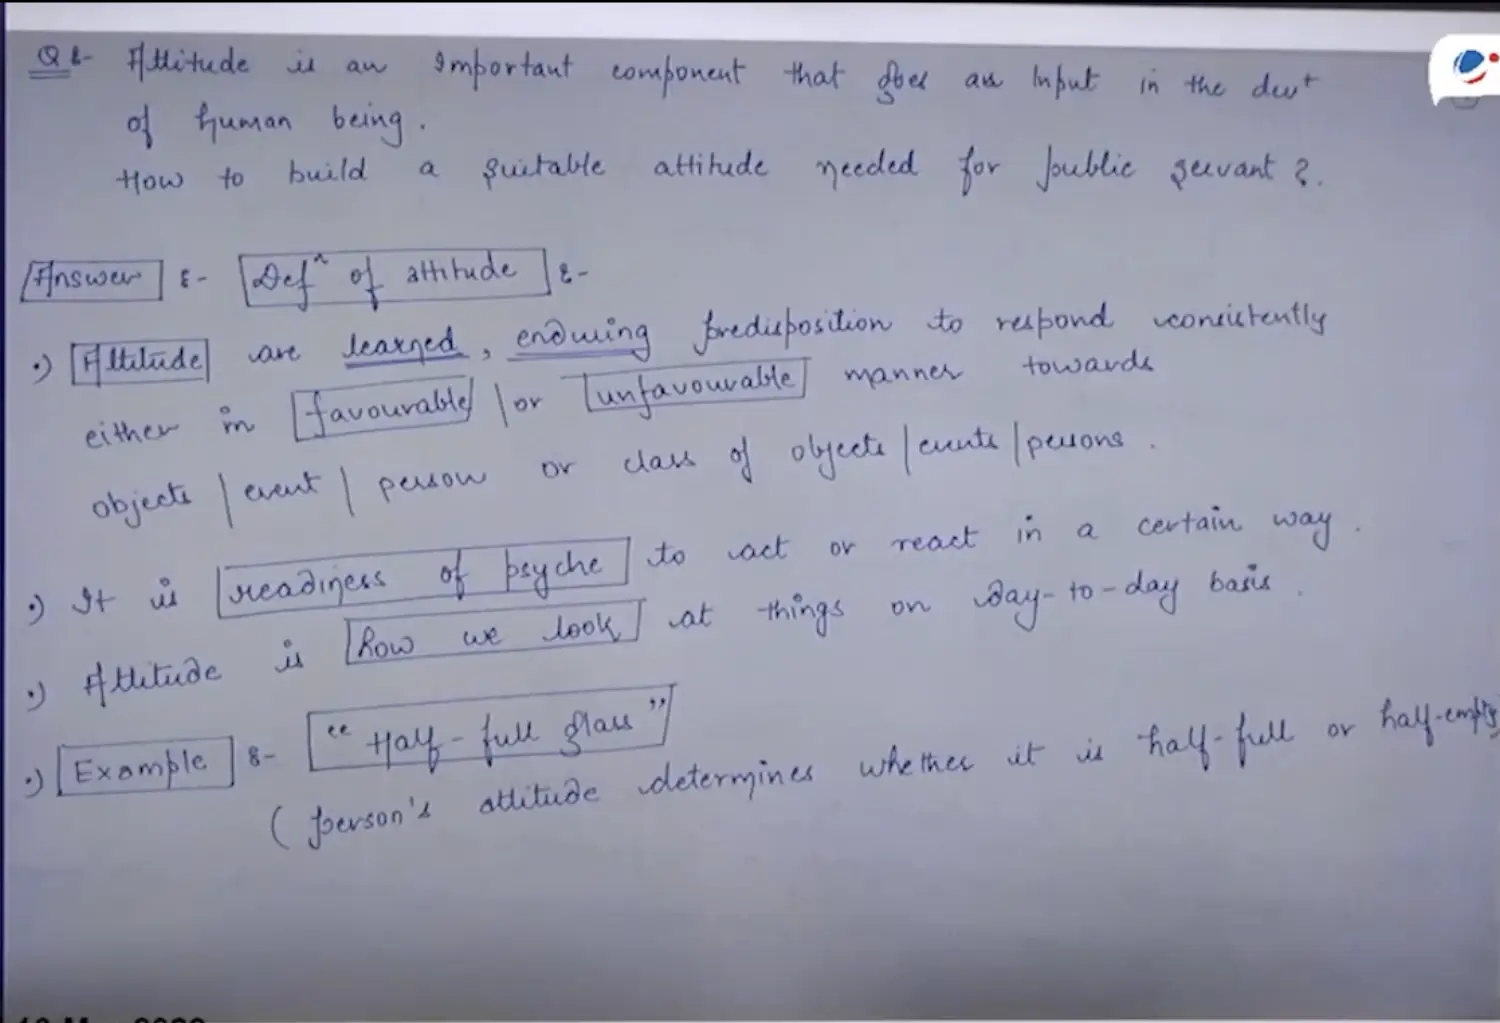 Q:- Attitude is an Important component that goes as Input in the devt
of human being.
How to build a suitable attitude needed for public servant?.
Answer :- Defn of attitude :-
•) Attitude are learned, enduring predisposition to respond consistently
either in favourable / or unfavourable manner towards
objects / event / person or class of objects / events / persons.
•) It is readiness of psyche to act or react in a certain way.
•) Attitude is how we look at things on day-to-day basis.
•) Example :- "Half-full glass"
( person's attitude determines whether it is half-full or half-empty